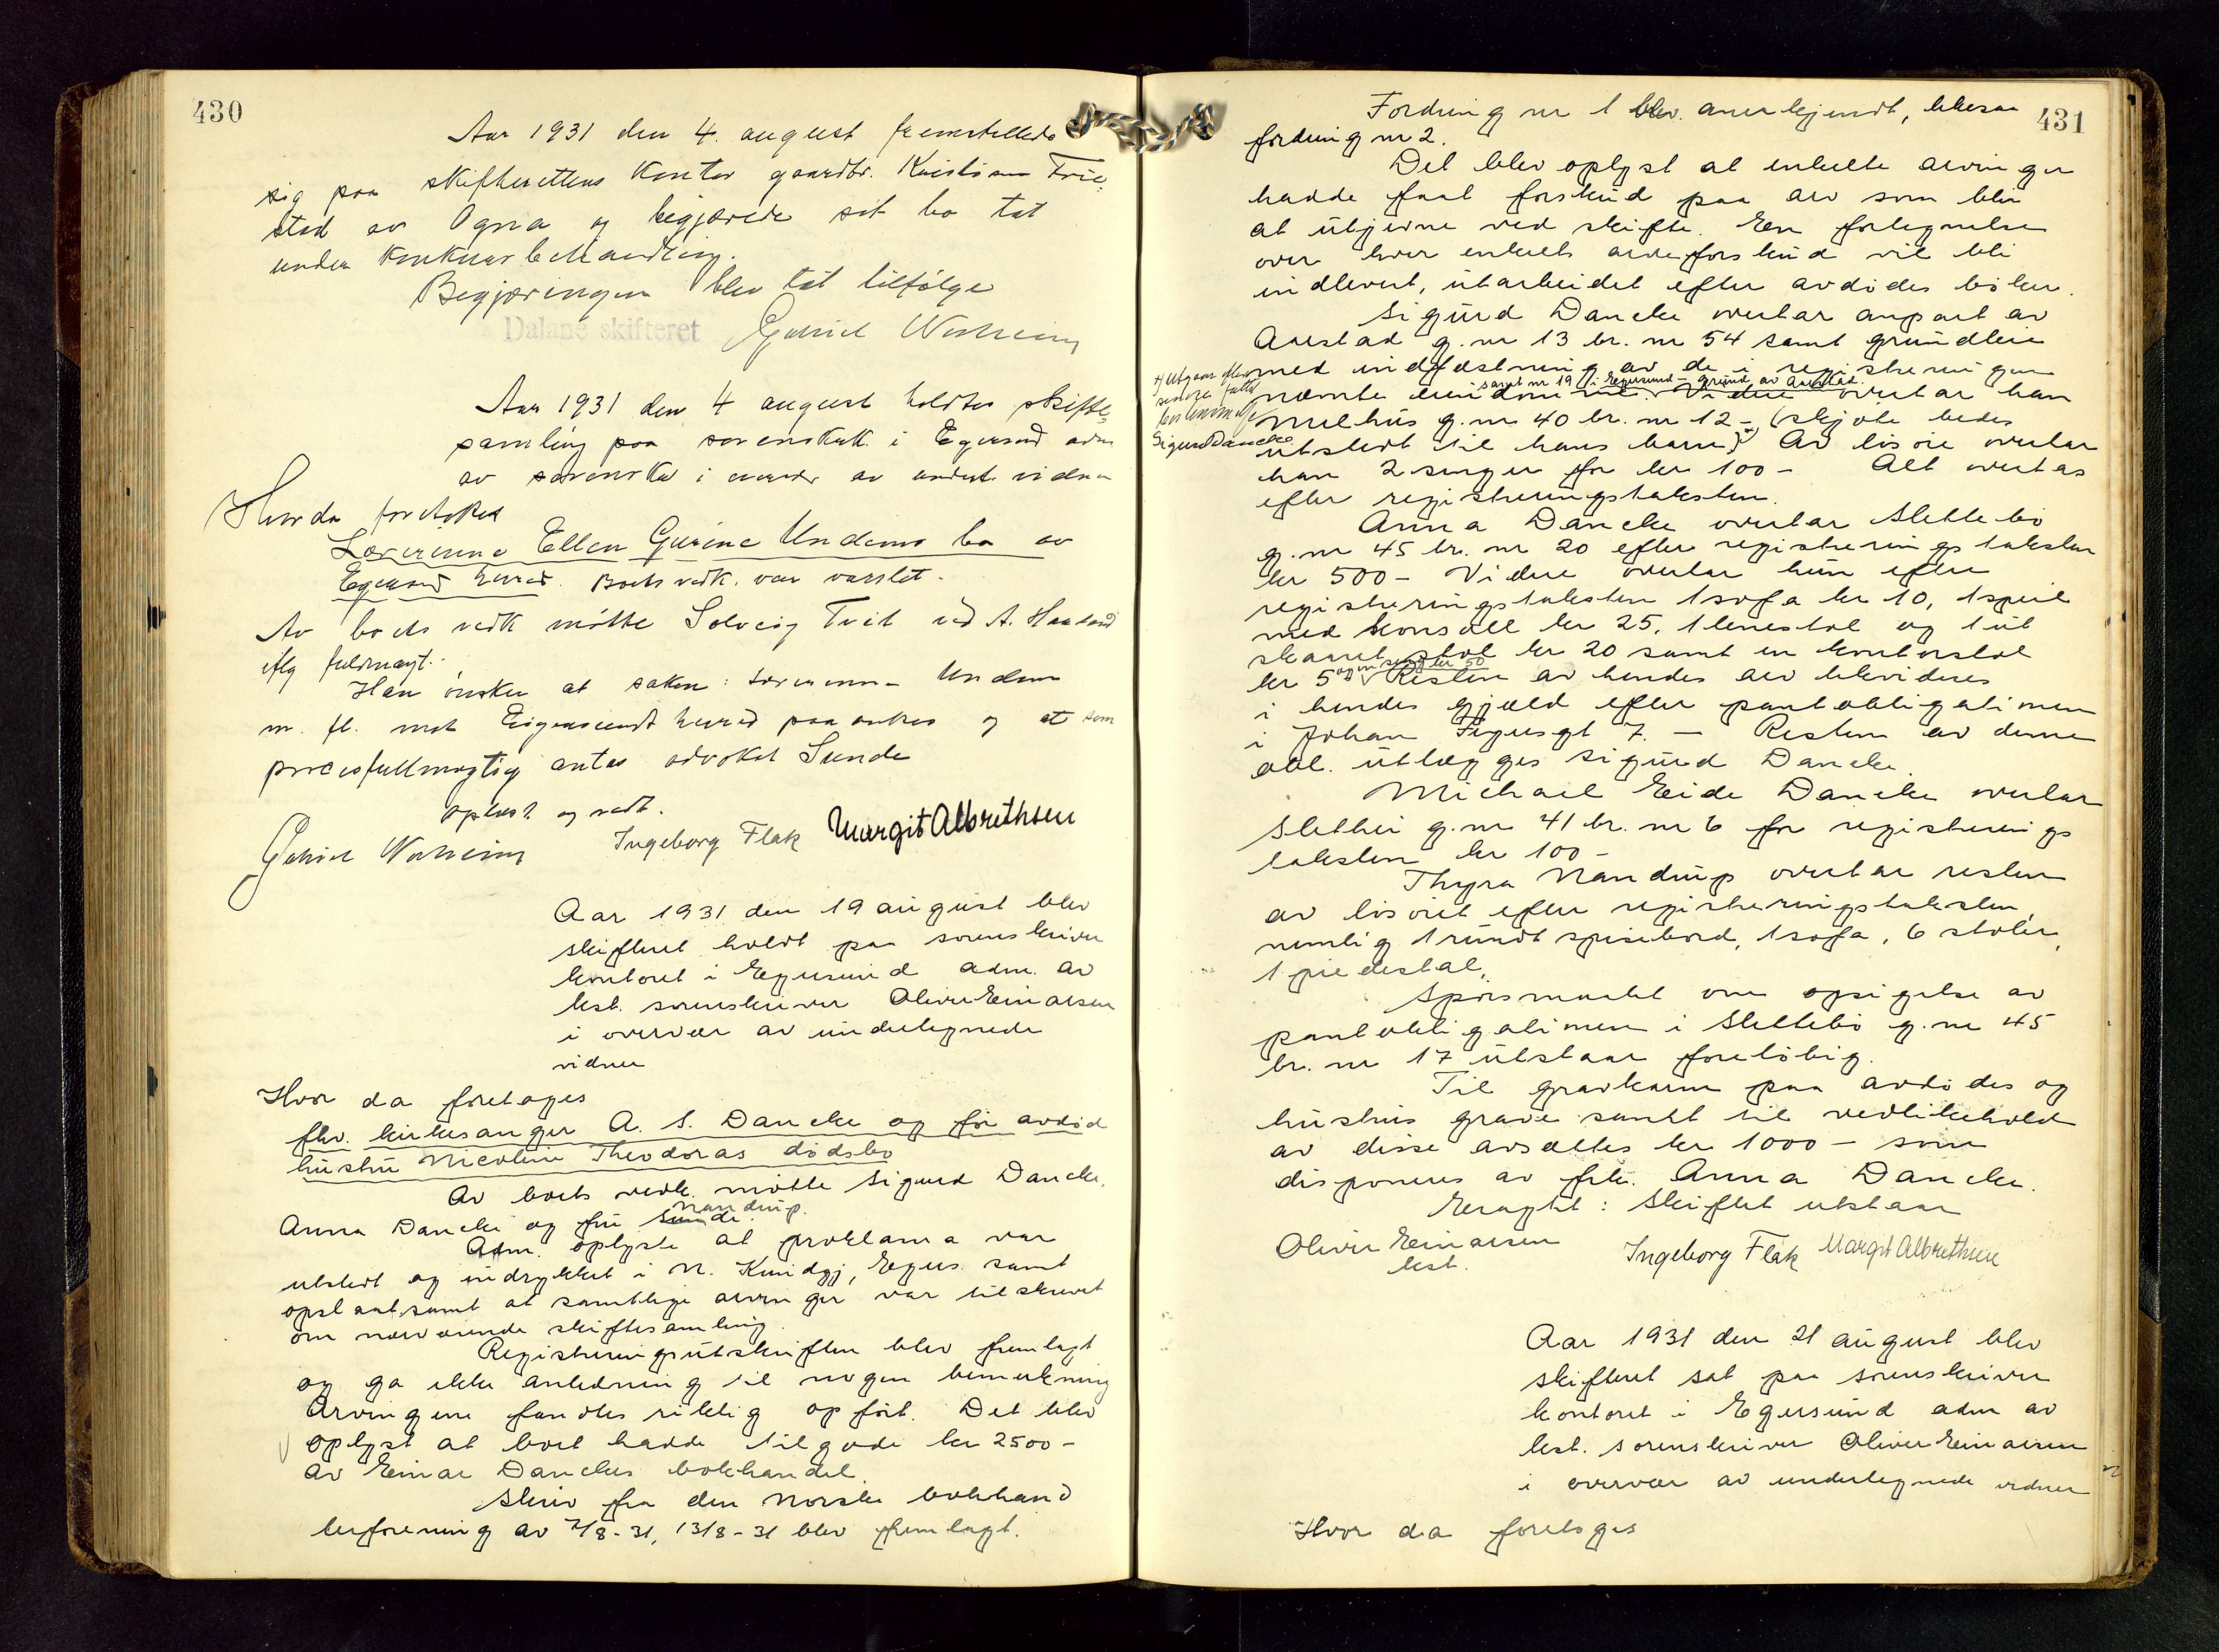 430
Aar 1931 den 4. august fremstillede
sig paa skifterettens kontor gaardbr. Kristian Trie
stad av Ogna og begjærede sit bo tat
under konkursbehandling.
Begjæringen blev tat tilfølge
Dalane skifteret Gabriel Woxheim
Aar 1931 den 4 august holdtes skifte
samling paa sorenskrk. i Egersund adm
av sorenskr i nærvær av undert. vidner
Hvorda foretokes
Lærerinne Ellen Gurine Undems bo av
Egersund herred. Boets vedk. var varslet.
Av boets vedk møtte Solveig Tveit ved A. Haaland
iflg fuldmagt.
Han ønsker at saken: Lærerinne Undem
m. fl. mot Eigersund herred paaankes og at som
procesfullmægtig antas advokat Sunde
Oplæst og vedt.
Gabriel Woxheim Ingeborg Flak Margit Albrethsen
Aar 1931 den 19 august blev
skifteret holdt paa sorenskriver
kontoret i Egersund adm. av
kst. sorenskriver Oliver Einarsen
i overvær av undertegnede
vidner
Hvor da foretoges
fhv. kirkesanger A. S. Dancke og før avdød
hustru Nicoline Theodoras dødsbo
Av boets vedk. møtte Sigurd Dancke,
Nandrup.
Anna Dancke og fru Sunde.
Adm. oplyste at proklama var
utstedt og indrykket i N. Kundgj, Egers. samt
opslaat samt at samtlige arvinger var tilskrevet
om nærværende skiftesamling.
Registreringsutskriften blev fremlagt
og ga ikke anledning til nogen bemerkning
Arvingene fandtes riktig opført. Det blev
oplyst at boet hadde tilgode kr 2500-
av Einar Danckes bokhandel.
Skriv fra den Norske bokhand
lerforening av 7/8-31, 13/8-31 blev fremlagt.
431
Fordring nr 1 blev anerkjendt, likesaa
fordring nr 2.
Det blev oplyst at enkelte arvinger
hadde faat forskud paa arv som blir
at utjevne ved skifte. En fortegnelse
over hver enkelt arveforskud vil bli
indlevert, utarbeidet efter avdødes bøker.
Sigurd Dancke overtar anpart av
Aarstad g.nr 13 br. nr 54 samt grundleie
med indfæstning av de i registreringen
samt nr 19 i Egersund - grund av Aarstad.
nævnte eiendomme. Videre overtar han
Melhus g.nr 40 br. nr 12 - (skjøte bedes
utstedt til hans barn) Av løsøre overtar
x) Utgaar efter
senere fattet
bestemmelse
Sigurd Dancke
han 2 senger for kr 100- Alt overtas
efter registreringstaksten.
Anna Dancke overtar Slettebø
g.nr 45 br. nr 20 efter registreringstaksten
kr 500- Videre overtar hun efter
registreringstaksten 1 sofa kr 10, 1 speil
med konsoll kr 25, 1 lenestol og 1 ut
skaaret stol kr 20 samt en kontorstol
og en seng kr 50
kr 5°° Resten av hendes arv likvideres
i hendes gjæld efter pantobligationen
i Johan Feyersgt 7. - Resten av denne
obl. utlægges Sigurd Dancke.
Michael Eide Dancke overtar
Slethei g.nr 41 br. nr 6 for registrerings
taksten kr 100-
Thyra Nandrup overtar resten
av løsøret efter registreringstaksten,
nemlig 1 rundt spisebord, 1 sofa, 6 stoler,
1 piedestal.
Spørsmaalet om opsigelse av
pantobligationen i Slettebø g.nr 45
br. nr 17 utstaar foreløbig.
Til gravkarm paa avdødes og
hustrus grave samt til vedlikehold
av disse avsættes kr 1000- som
disponeres av frk. Anna Dancke.
Eragtet: Skiftet utstaar
Oliver Einarsen Ingeborg Flak Margit Albrethsen
kst.
Aar 1931 den 21 august blev
skifteret sat paa sorenskriver
kontoret i Egersund adm av
kst. sorenskriver Oliver Einarsen
i overvær av undertegnede vidner
Hvor da foretoges